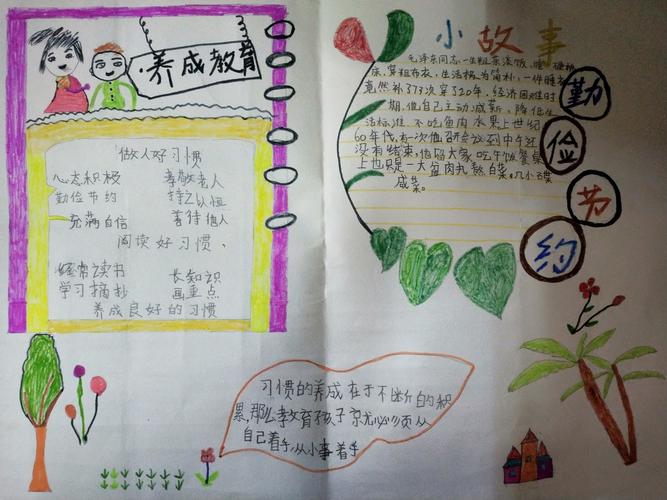 养成教育
做人好习惯
心态积极 孝敬老人
勤俭节约 持之以恒
充满自信 善待他人
阅读好习惯、
经常读书 长知识
学习摘抄 画重点
养成良好的习惯
小故事
毛泽东同志一生粗茶淡饭、睡硬板
床、穿粗布衣，生活极为简朴，一件睡衣
竟然补了73次穿了20年。经济困难时
期，他自己主动减薪、降低生
活标准，不吃鱼肉水果上世纪
60年代，有一次他召研会议到中午还
没有结束，他留大家吃午饭餐桌
上也只是一大盆肉丸熬白菜。几小碟
咸菜。
勤
俭
节
约
习惯的养成在于不断的积
累，那么教育孩子就必须从
自己着手，从小事着手